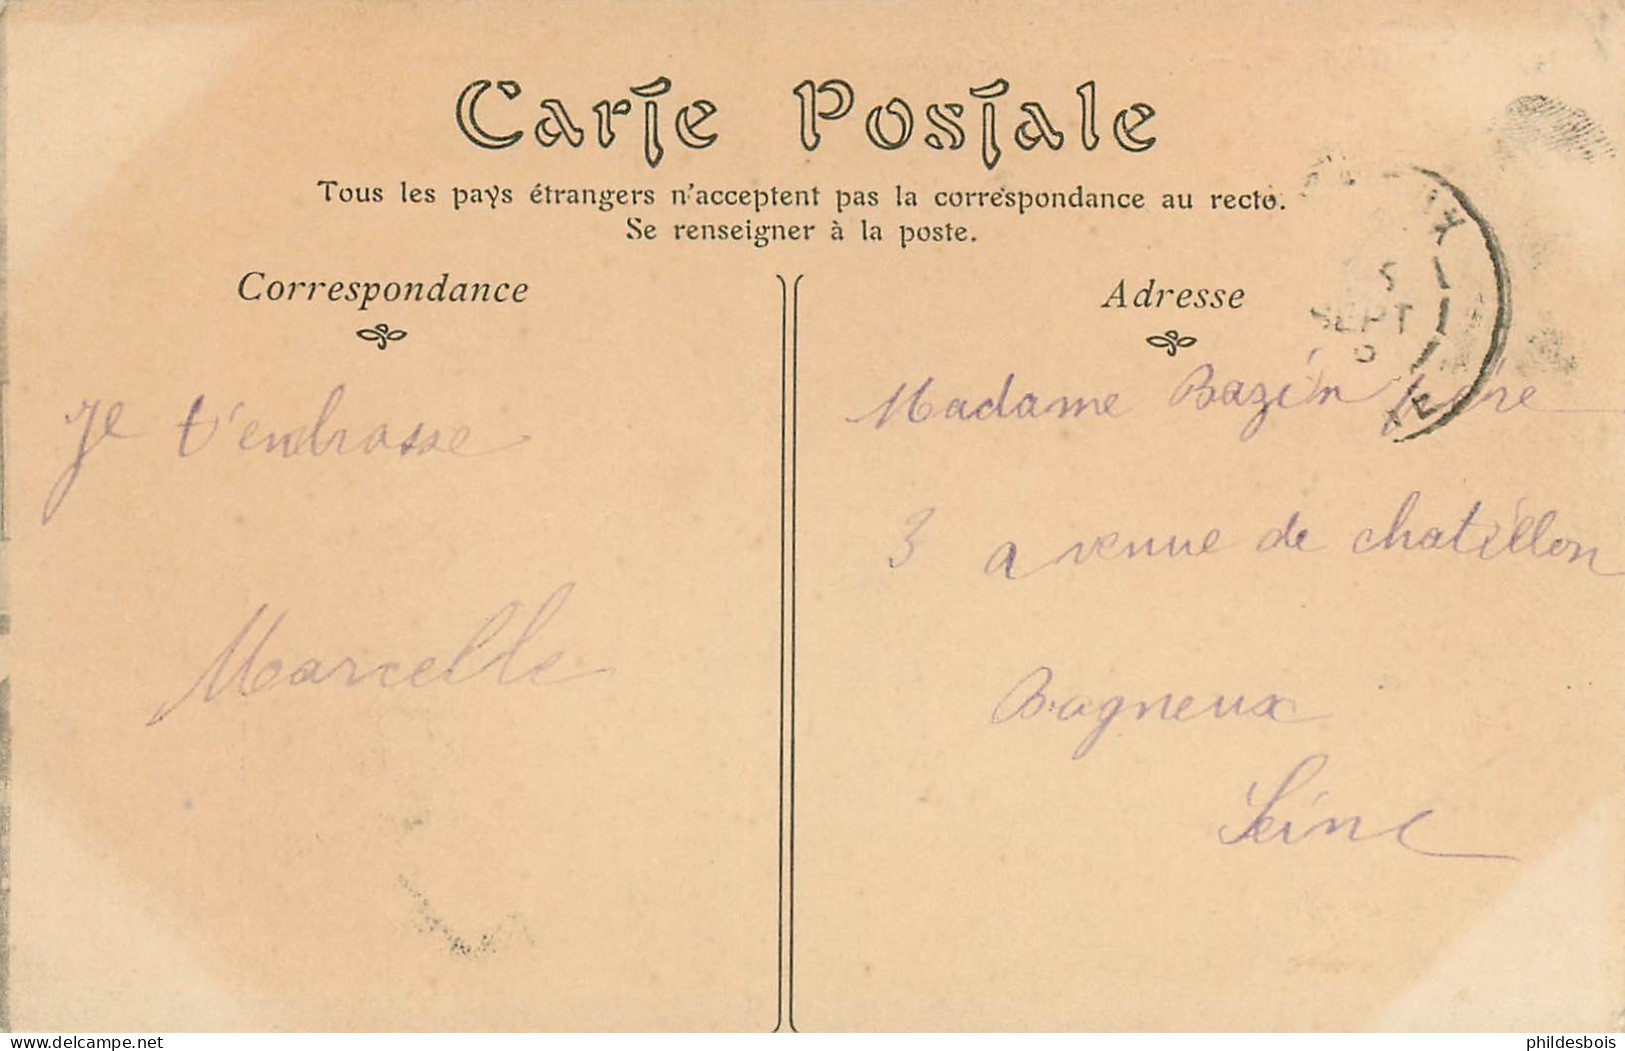 Carte Postale
Tous les pays étrangers n'acceptent pas la correspondance au recto.
Se renseigner à la poste.
Correspondance
Adresse
5
SEPT
Je t'enbrasse
Marcelle
Madame Bazin
3 avenue de chatillon
Bagneux
Seine
delcampe.net
phildesbois